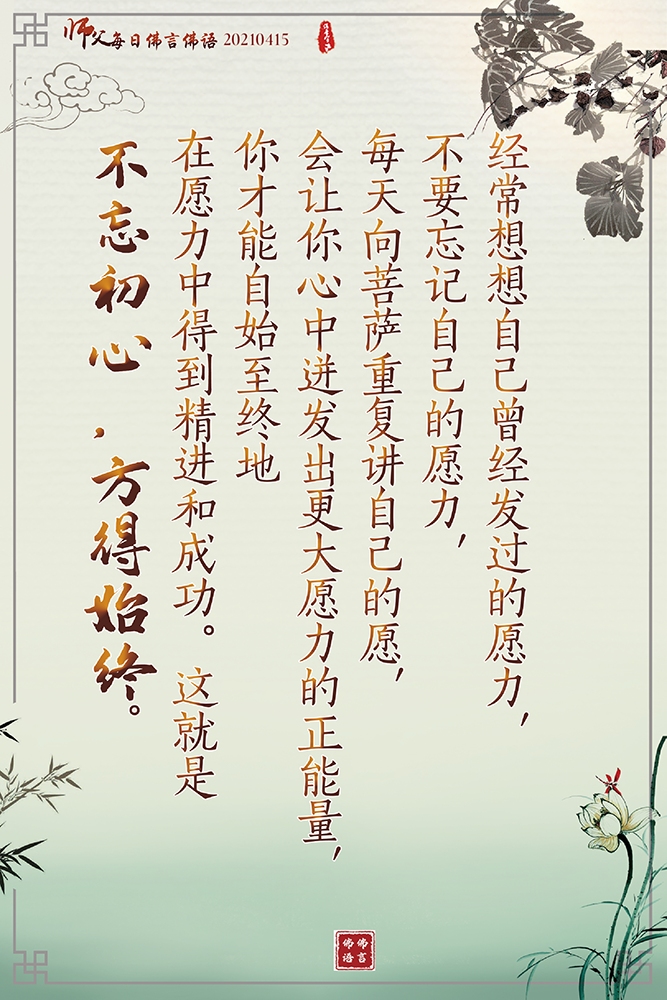 师父每日佛言佛语 20210415
经常想想自己曾经发过的愿力，
不要忘记自己的愿力，
每天向菩萨重复讲自己的愿，
会让你心中迸发出更大愿力的正能量，
你才能自始至终地
在愿力中得到精进和成功。 这就是
不忘初心，方得始终。
佛言
佛语